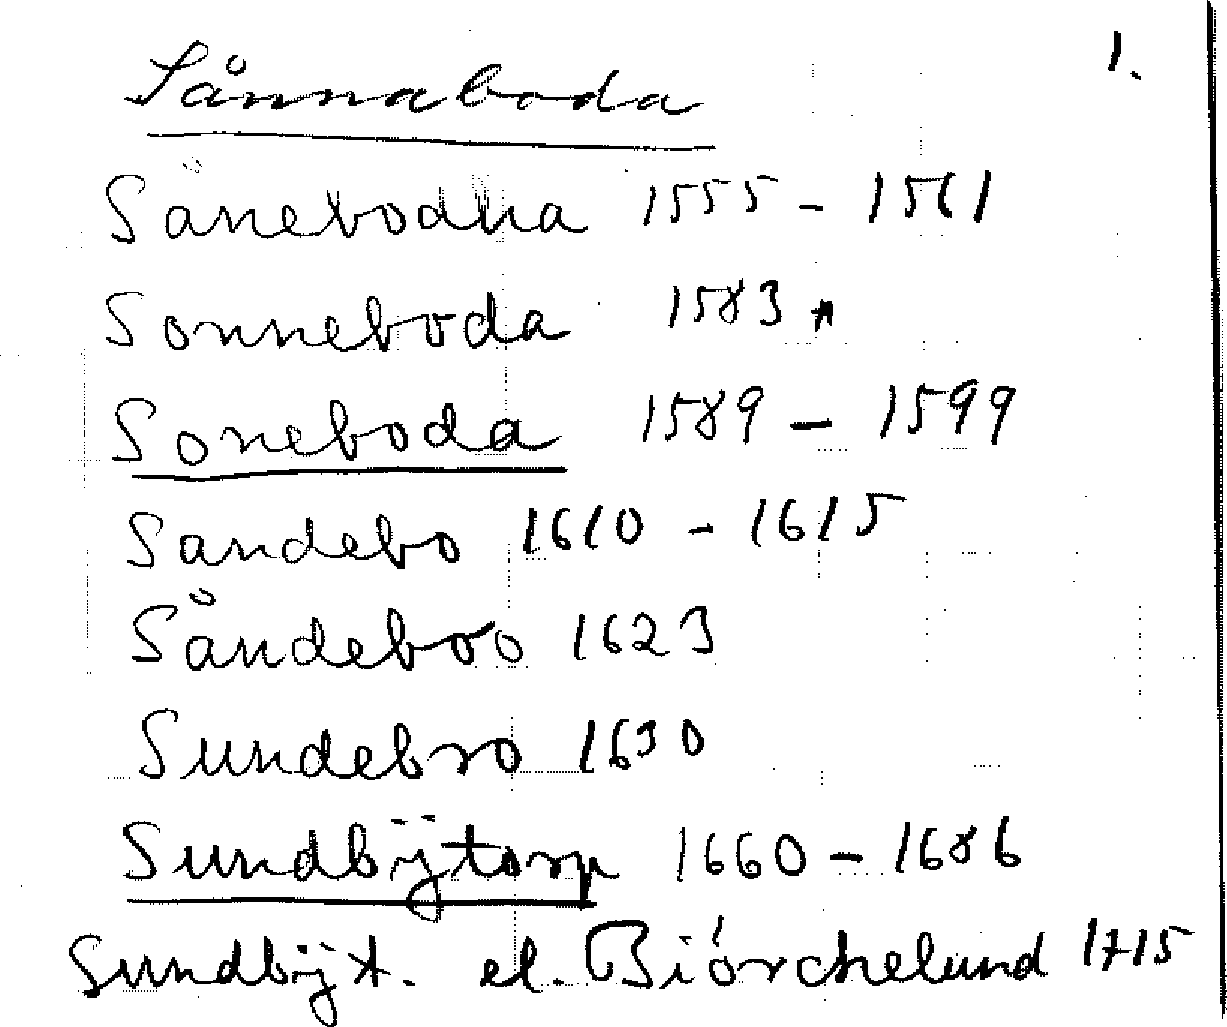 1.
Sånnaboda
Sånebodha 1555 - 1561
Sonneboda 1583 *
Soneboda 1589 - 1599
Sandebo 1610 - 1615
Såndeboo 1623
Sundebro 1630
Sundbÿtorp 1660 - 1686
Sundbÿt. el. Biörchelund 1715